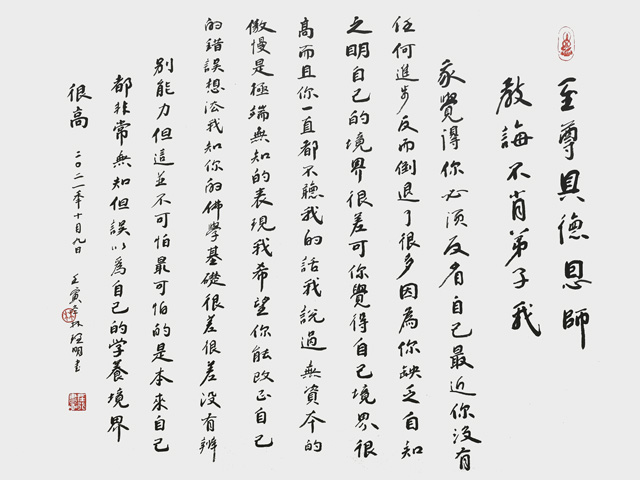 至尊具德恩師
教誨不肖弟子我
家覺得你必須反省自己最近你沒有
任何進步反而倒退了很多因為你缺乏自知
之明自己的境界很差可你覺得自己境界很
高而且你一直都不聽我的話我說過無資本的
傲慢是極端無知的表現我希望你能改正自己
的錯誤想法我知你的佛學基礎很差很差沒有辨
别能力但這並不可怕最可怕的是本來自己
都非常無知但誤以為自己的学養境界
很高 二〇二一年十月九日